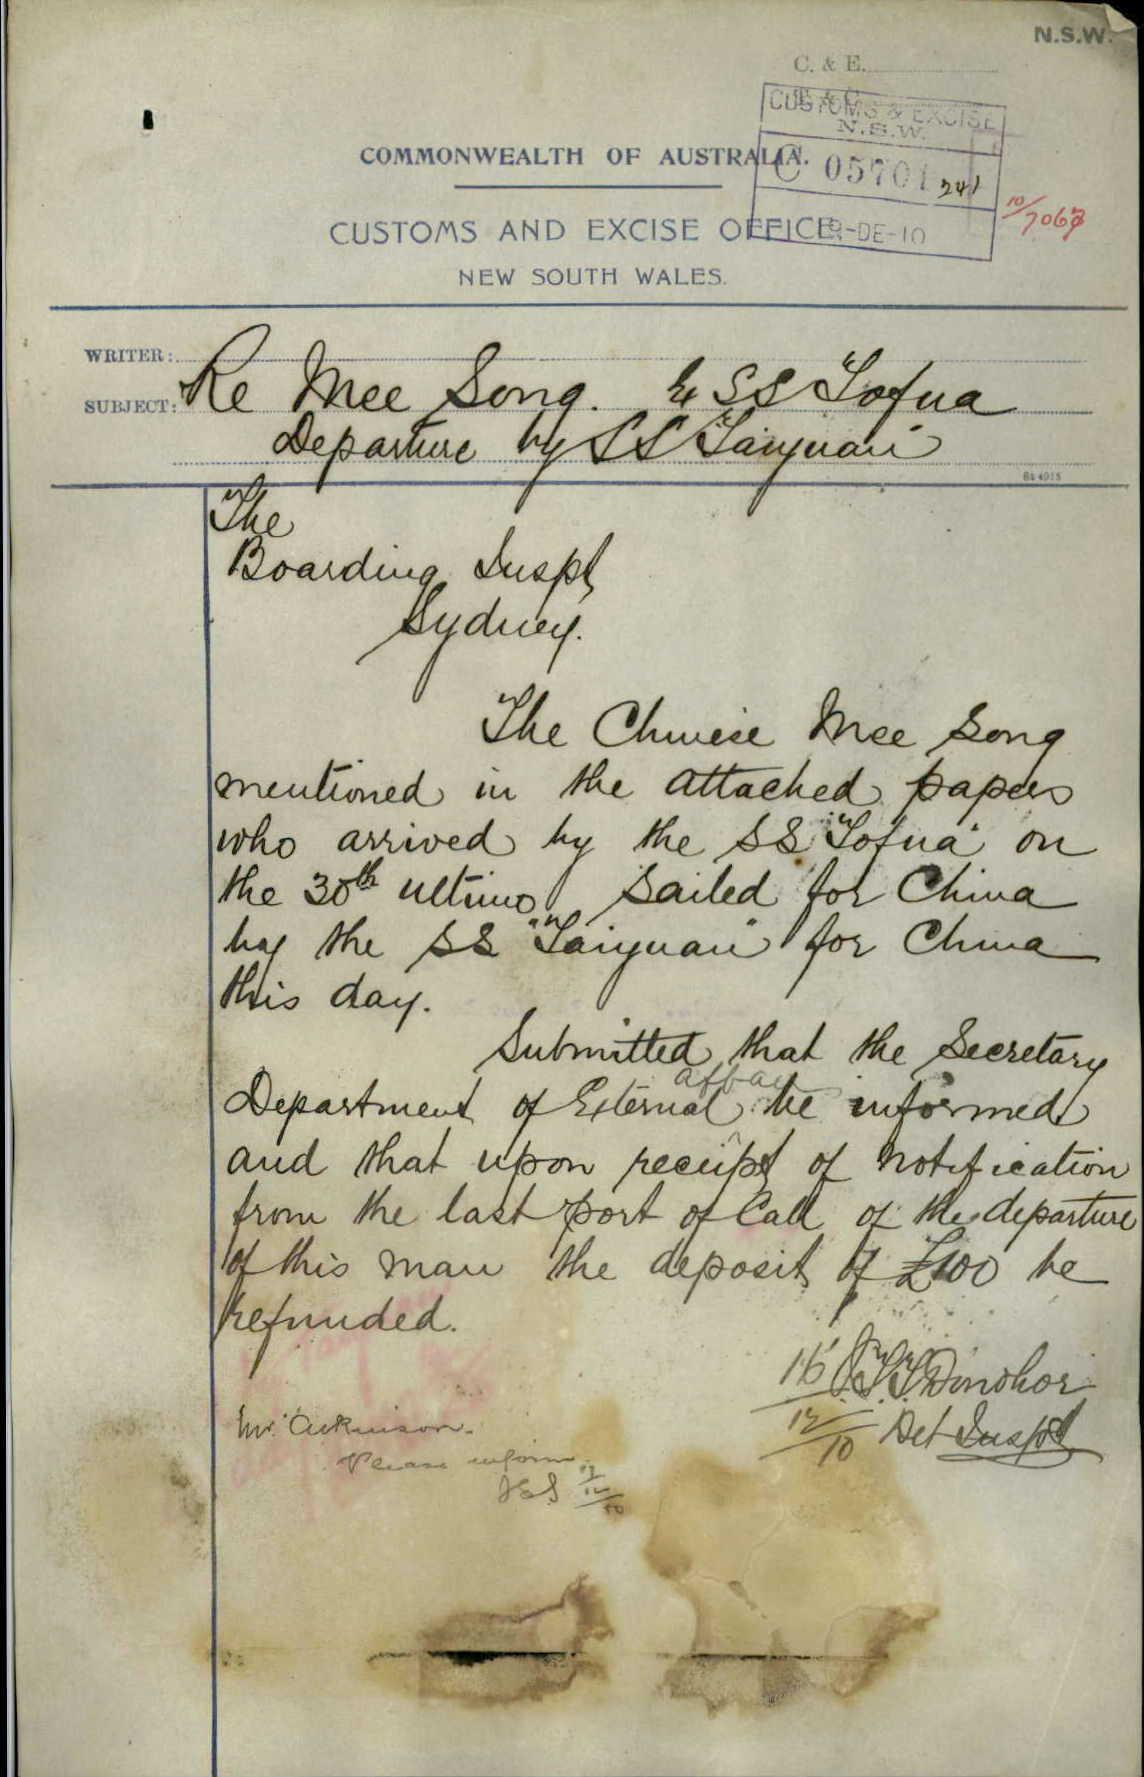 N.S.W.
C. & E.
CUSTOMS & EXCISE
N.S.W.
COMMONWEALTH OF AUSTRALIA.
C 05701 241
10/7067
CUSTOMS AND EXCISE OFFICE
-DE-10
NEW SOUTH WALES.
WRITER:
SUBJECT: Re Mee Song. Ex SS Tofua
Departure by SS "Taiyuan"
The
Boarding Inspr
Sydney.
The Chinese Mee Song
mentioned in the attached papers
who arrived by the SS "Tofua" on
the 30th ultimo, sailed for China
by the SS "Taiyuan" for China
this day.
Submitted that the Secretary
affair
Department of External be informed
and that upon receipt of notification
from the last port of Call of the departure
of this man the deposit of £100 be
refunded.
J.T.T. Donohoe
16/12/10 Det Inspr
Mr. Atkinson.
Please inform